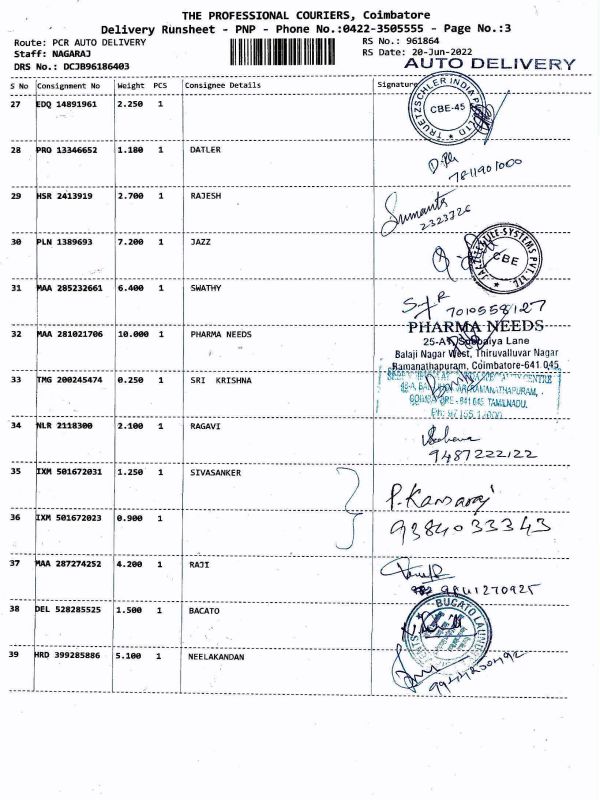 THE PROFESSIONAL COURIERS, Coimbatore
Delivery Runsheet - PNP - Phone No.:0422-3505555 - Page No.:3
Route: PCR AUTO DELIVERY
RS No.: 961864
Staff: NAGARAJ
RS Date: 20-Jun-2022
DRS No.: DCJB96186403
AUTO DELIVERY
S No Consignment No Weight PCS Consignee Details Signature
27 EDQ 14891961 2.250 1
TRUETZSCHLER INDIA PVT LTD
CBE-45
28 PRO 13346652 1.180 1 DATLER
7811901000
29 HSR 2413919 2.700 1 RAJESH
Sumanta
2323726
30 PLN 1389693 7.200 1 JAZZ
SYSTEMS PVT. LTD.
CBE
31 MAA 285232661 6.400 1 SWATHY
7010558127
32 MAA 281021706 10.000 1 PHARMA NEEDS
PHARMA NEEDS
Lane
Balaji Nagar West, Thiruvalluvar Nagar
Ramanathapuram, Coimbatore-641 045
33 TMG 200245474 0.250 1 SRI KRISHNA
CENTRE
RAMANATHAPURAM,
TAMILNADU.
34 NLR 2118300 2.100 1 RAGAVI
9487222122
35 IXM 501672031 1.250 1 SIVASANKER
P. Kamaraj
36 IXM 501672023 0.900 1
9384033343
37 MAA 287274252 4.200 1 RAJI
9841270925
38 DEL 528285525 1.500 1 BACATO
BUGATO
39 HRD 399285886 5.100 1 NEELAKANDAN